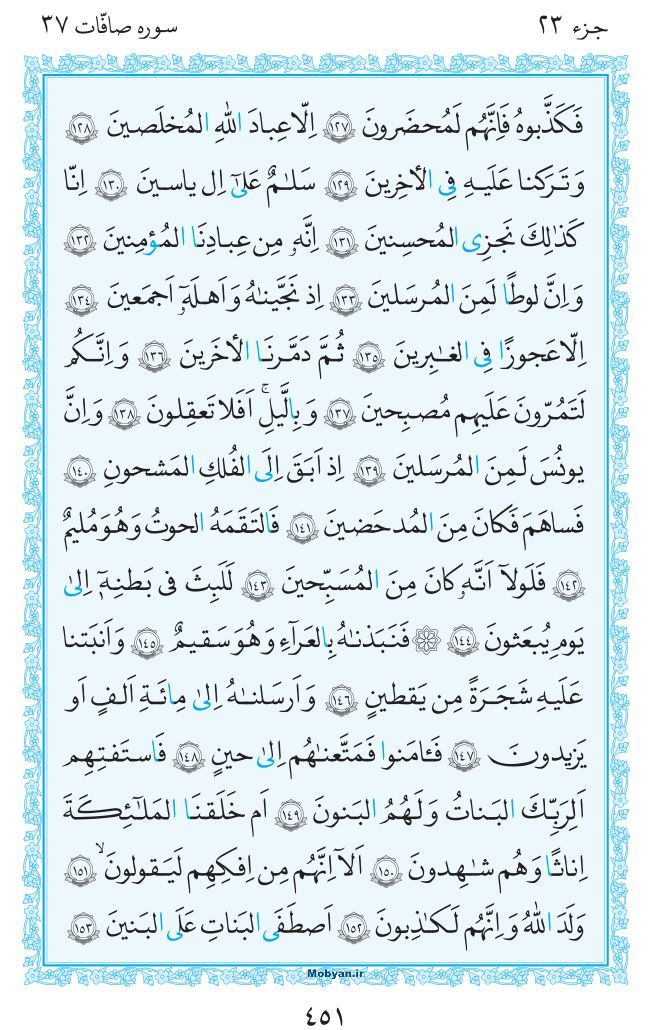 جزء ۲۳
سوره صافّات ۳۷
فَكَذَّبوهُ فَاِنَّهُم لَمُحضَرونَ ﴿١٢٧﴾ اِلّا عِبادَ اللهِ المُخلَصينَ ﴿١٢٨﴾
وَ تَرَكنا عَلَيهِ فِى الأخِرينَ ﴿١٢٩﴾ سَلـٰمٌ عَلىٰٓ اِل ياسينَ ﴿١٣٠﴾ اِنّا
كَذٰلِكَ نَجزِى المُحسِنينَ ﴿١٣١﴾ اِنَّهٗ مِن عِبادِنَا المُؤمِنينَ ﴿١٣٢﴾
وَ اِنَّ لوطًا لَمِنَ المُرسَلينَ ﴿١٣٣﴾ اِذ نَجَّينـٰهُ وَ اَهلَهٗٓ اَجمَعينَ ﴿١٣٤﴾
اِلّا عَجوزًا فِى الغـٰبِرينَ ﴿١٣٥﴾ ثُمَّ دَمَّرنَا الأخَرينَ ﴿١٣٦﴾ وَ اِنَّكُم
لَتَمُرّونَ عَلَيهِم مُصبِحينَ ﴿١٣٧﴾ وَ بِالَّيلِ ۚ اَفَلا تَعقِلونَ ﴿١٣٨﴾ وَ اِنَّ
يونُسَ لَمِنَ المُرسَلينَ ﴿١٣٩﴾ اِذ اَبَقَ اِلَى الفُلكِ المَشحونِ ﴿١٤٠﴾
فَساهَمَ فَكانَ مِنَ المُدحَضينَ ﴿١٤١﴾ فَالتَقَمَهُ الحوتُ وَ هُوَ مُليمٌ
﴿١٤٢﴾ فَلَولآ اَنَّهٗ كانَ مِنَ المُسَبِّحينَ ﴿١٤٣﴾ لَلَبِثَ فى بَطنِهٖٓ اِلىٰ
يَومِ يُبعَثونَ ﴿١٤٤﴾ ۞ فَنَبَذنـٰهُ بِالعَرآءِ وَ هُوَ سَقيمٌ ﴿١٤٥﴾ وَ اَنبَتنا
عَلَيهِ شَجَرَةً مِن يَقطينٍ ﴿١٤٦﴾ وَ اَرسَلنـٰهُ اِلىٰ مِائَةِ اَلفٍ اَو
يَزيدونَ ﴿١٤٧﴾ فَـٔامَنوا فَمَتَّعنـٰهُم اِلىٰ حينٍ ﴿١٤٨﴾ فَاستَفتِهِم
اَلِرَبِّكَ البَناتُ وَ لَهُمُ البَنونَ ﴿١٤٩﴾ اَم خَلَقنَا المَلـٰٓئِكَةَ
اِناثًا وَ هُم شـٰهِدونَ ﴿١٥٠﴾ اَلآ اِنَّهُم مِن اِفكِهِم لَيَقولونَ ۙ ﴿١٥١﴾
وَلَدَ اللهُ وَ اِنَّهُم لَكـٰذِبونَ ﴿١٥٢﴾ اَصطَفَى البَناتِ عَلَى البَنينَ ﴿١٥٣﴾
Mobyan.ir
٤٥١